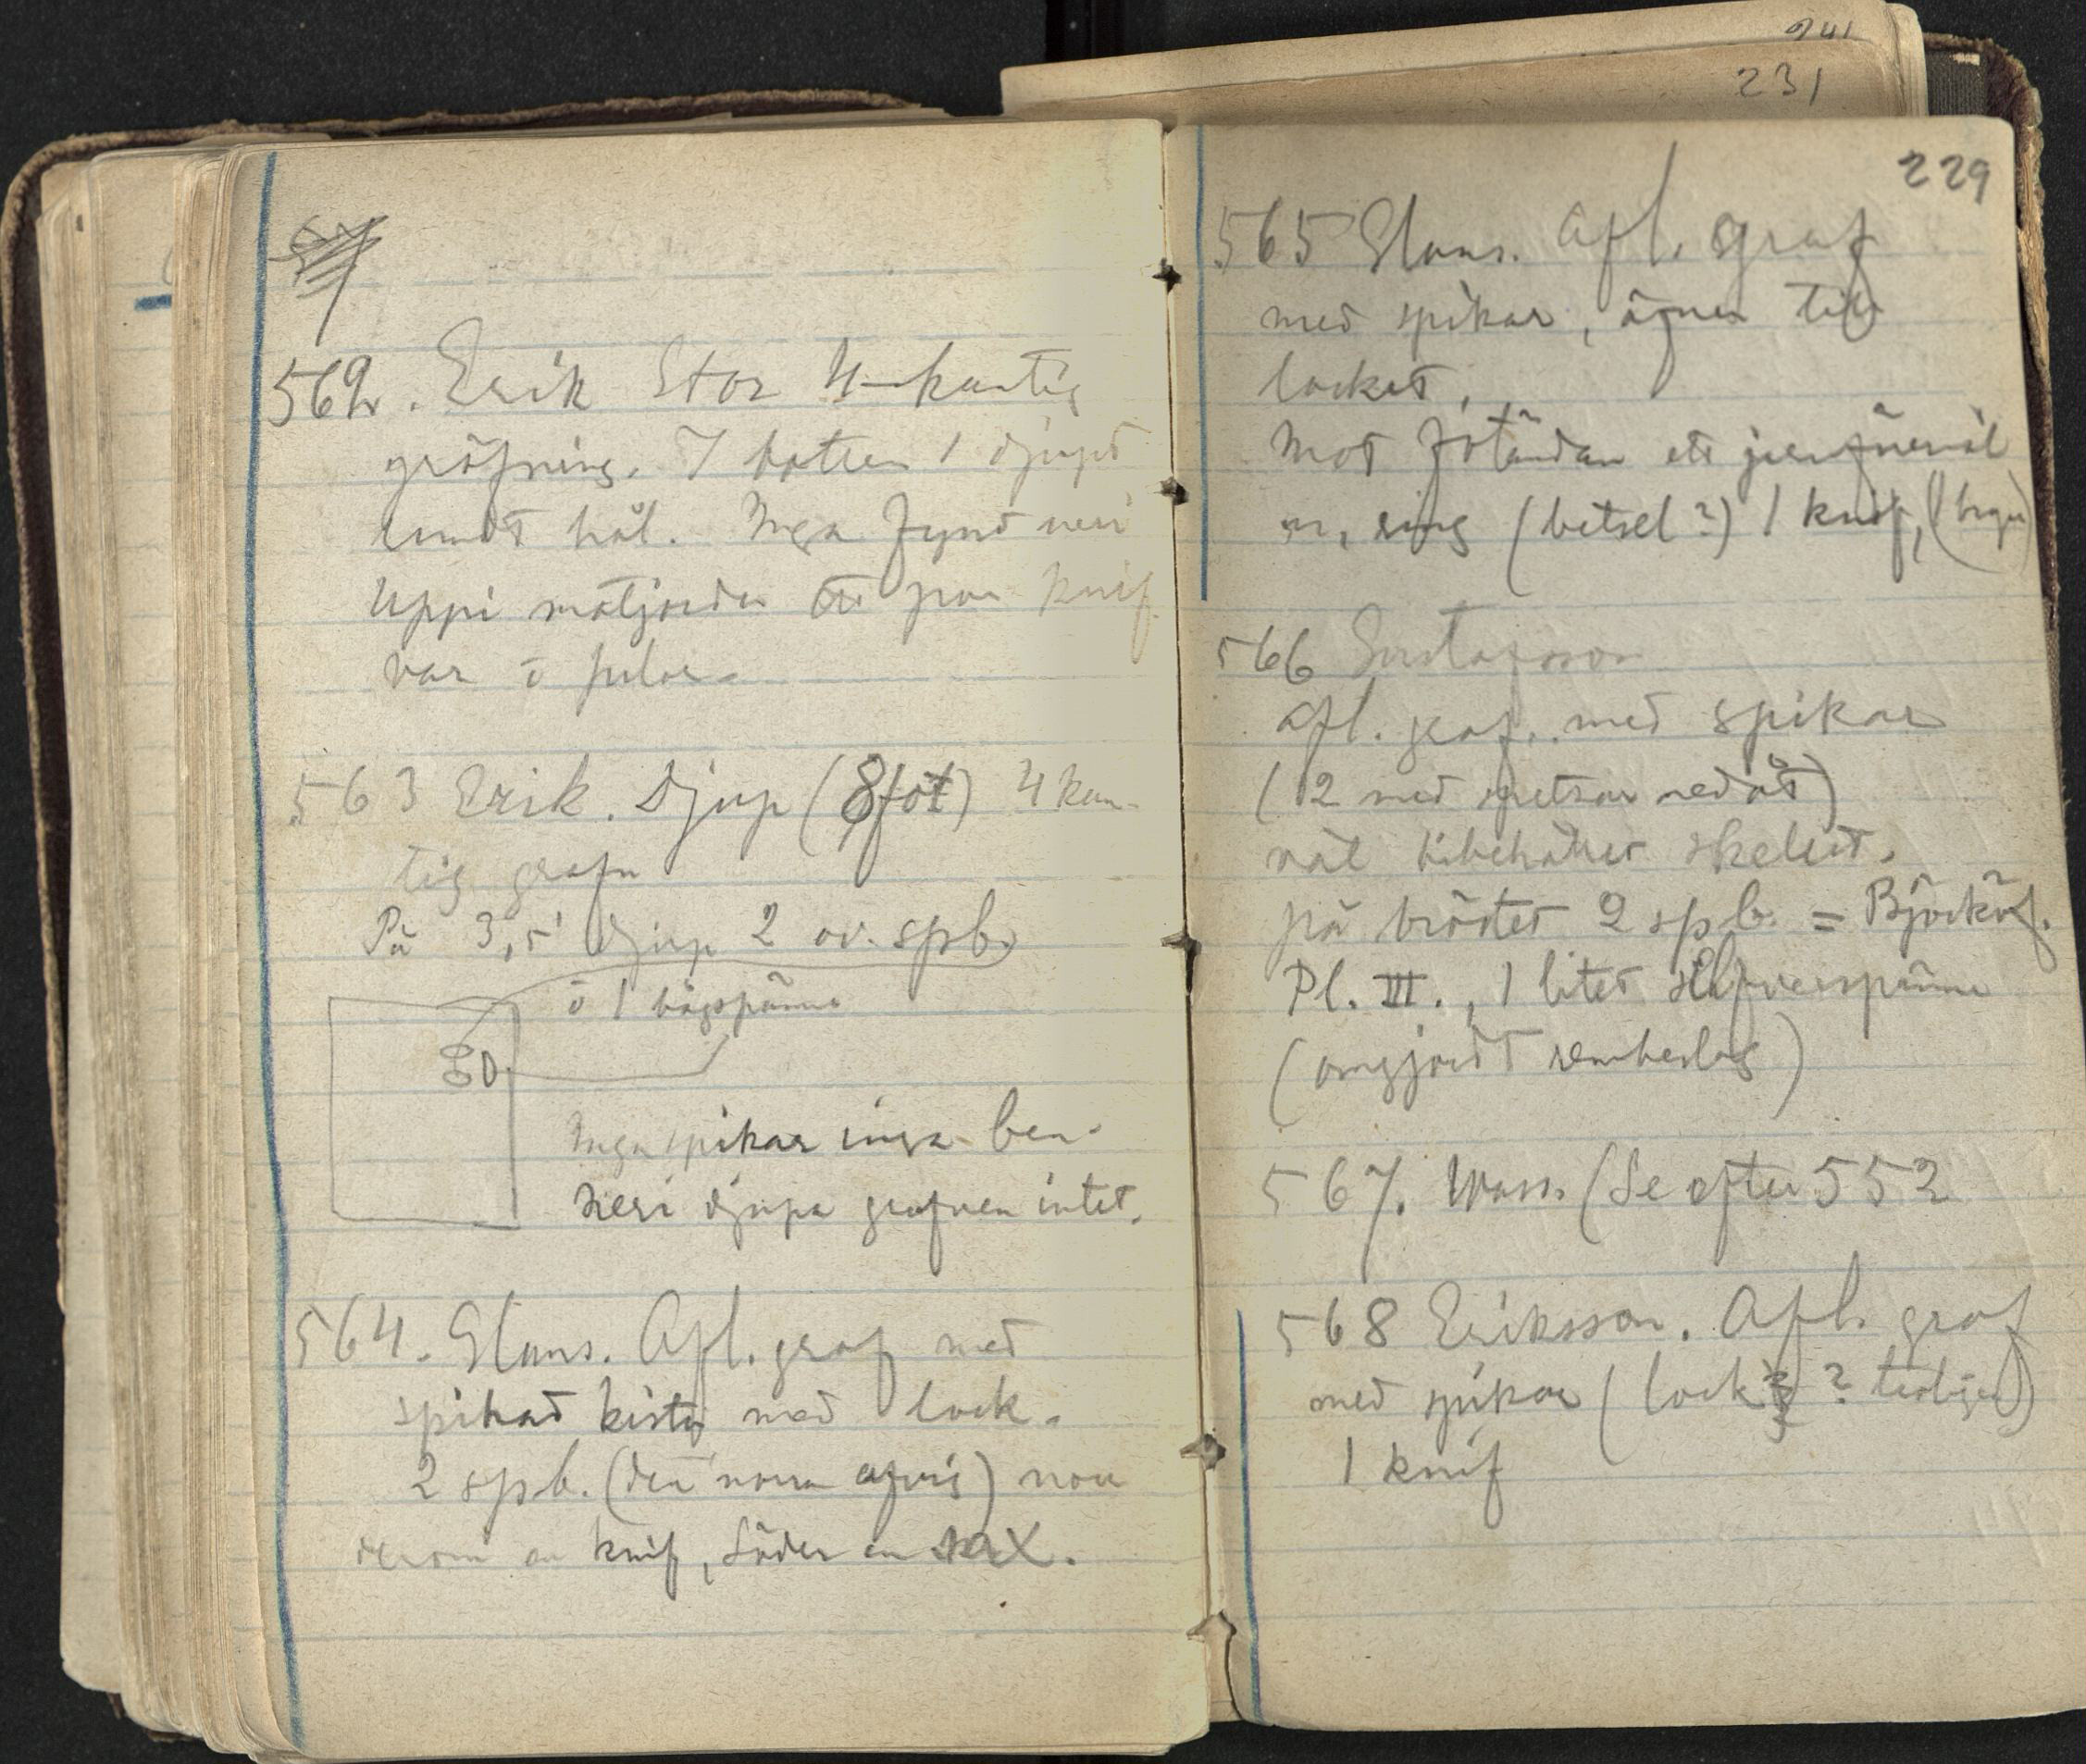 562. Erik Stor 4-kantig
gräfning. I botten 1 djupt
rundt hål. Inga fynd neri
Uppi matjorden ett par knif
var o pilar.
563 Erik. Djup (8 fot) 4 kan-
tig grafn
På 3,5' djup 2 ov. spb.
o 1 bågspänne
Inga spikar inga ben.
Neri djupa grafven intet.
564. Glans. Afl. graf med
spikad kista med lock.
2 spb. (den norra afvig) norr
derom en knif, söder en sax.
241
231
229
565 Glans. Afl. graf
med spikar, äfven till
locket.
Mot fotändan ett jernföremål
m. ring (betsel?) 1 knif,
566 Gustafsson
afl. graf. med spikar
(12 med spetsar nedåt)
väl bibehållet skelett.
på bröstet 2 spb. = Björkö f.
Pl. III., 1 litet silfverspänne
(omgjordt rembeslag)
567. Wass. (Se efter 552
568 Eriksson. Afl. graf
med spikar (lock ? troligen)
1 knif